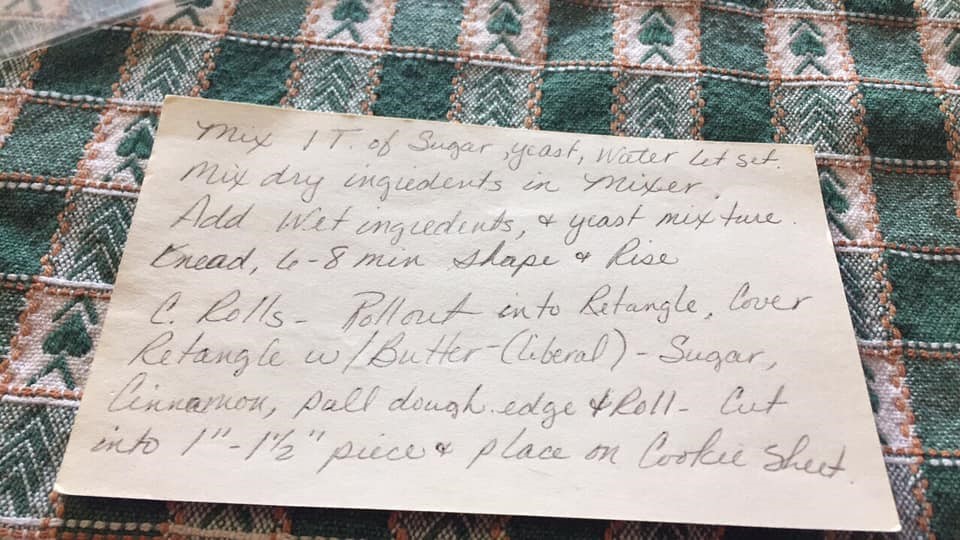 Mix 1 T. of Sugar, yeast, Water let set.
Mix dry ingredients in Mixer.
Add Wet ingredents, & yeast mixture.
Knead, 6-8 min shape & Rise
C. Rolls - Rollout into Retangle, Cover
Retangle w/Butter-(liberal) - Sugar,
Cinnamon, pull dough edge & Roll - Cut
into 1"-1½" piece & place on Cookie Sheet.